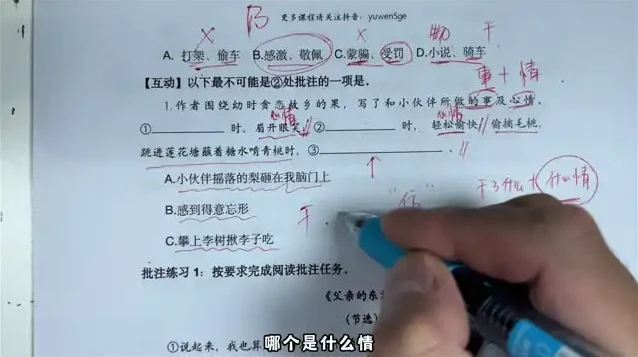 B 更多课程请关注抖音：yuwen5ge
A. 打架、偷车 B.感激、敬佩 C.蒙骗、受罚 D.小说、骑车
事+情
【互动】以下最不可能是②处批注的一项是。
1.作者围绕幼时贪恋故乡的果，写了和小伙伴所做的事及心情。
心情
①时，眉开眼笑 ②时，轻松愉快 偷摘毛桃
跳进莲花塘蘸着糖水啃青桃时，③。
A.小伙伴摇落的梨砸在我脑门上
干了什么+什么情
B.感到得意忘形
干
C.攀上李树揪李子吃
批注练习1：按要求完成阅读批注任务。
《父亲的东
（节选）
①说起来，我也算
哪个是什么情